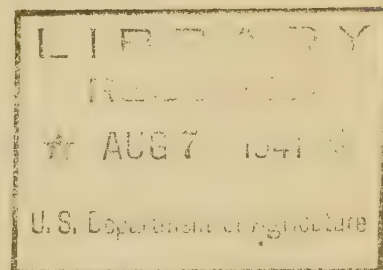 LIBRARY
☆ AUG 7 1941 ☆
U. S. Department of Agriculture